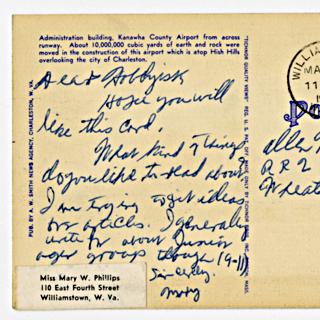 Administration building, Kanawha County Airport from across
runway. About 10,000,000 cubic yards of earth and rock were
moved in the construction of this airport which is atop Hish Hills
overlooking the city of Charleston.
Dear Hobbyist
Hope you will
like this card.
What kind of things
do you like to read about?
I am trying to get ideas
for articles. I generally
write for about Junior
ages group though (9-11)
Sincerely,
Mary
Miss Mary W. Phillips
110 East Fourth Street
Williamstown, W. Va.
PUB. BY A. W. SMITH NEWS AGENCY, CHARLESTON, W. VA.
"TICHNOR QUALITY VIEWS" REG. U. S. PAT. OFF.
WILLIA
MA
11
Po
Allen
RR2
Wheat